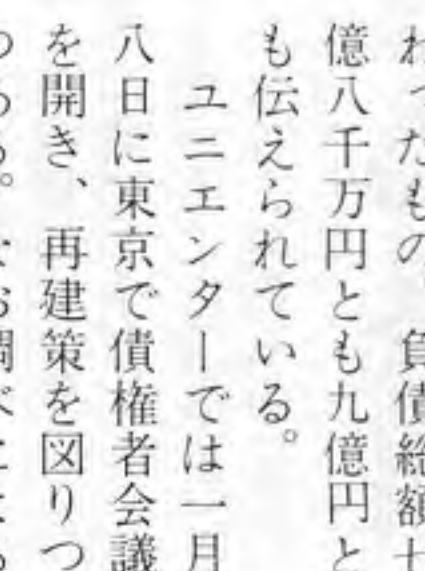 わったもの。負債総額七
億八千万円とも九億円と
も伝えられている。
ユニエンターでは一月
八日に東京で債権者会議
を開き、再建策を図りつ
つある。なお調べによる